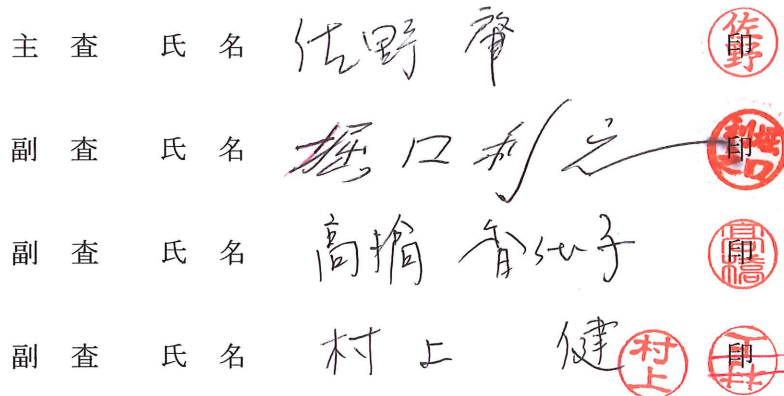 主査 氏名 佐野 肇 印 佐野
副査 氏名 堀口利之 印 堀口利之
副査 氏名 高橋 香代子 印 高橋
副査 氏名 村上 健 村上 印